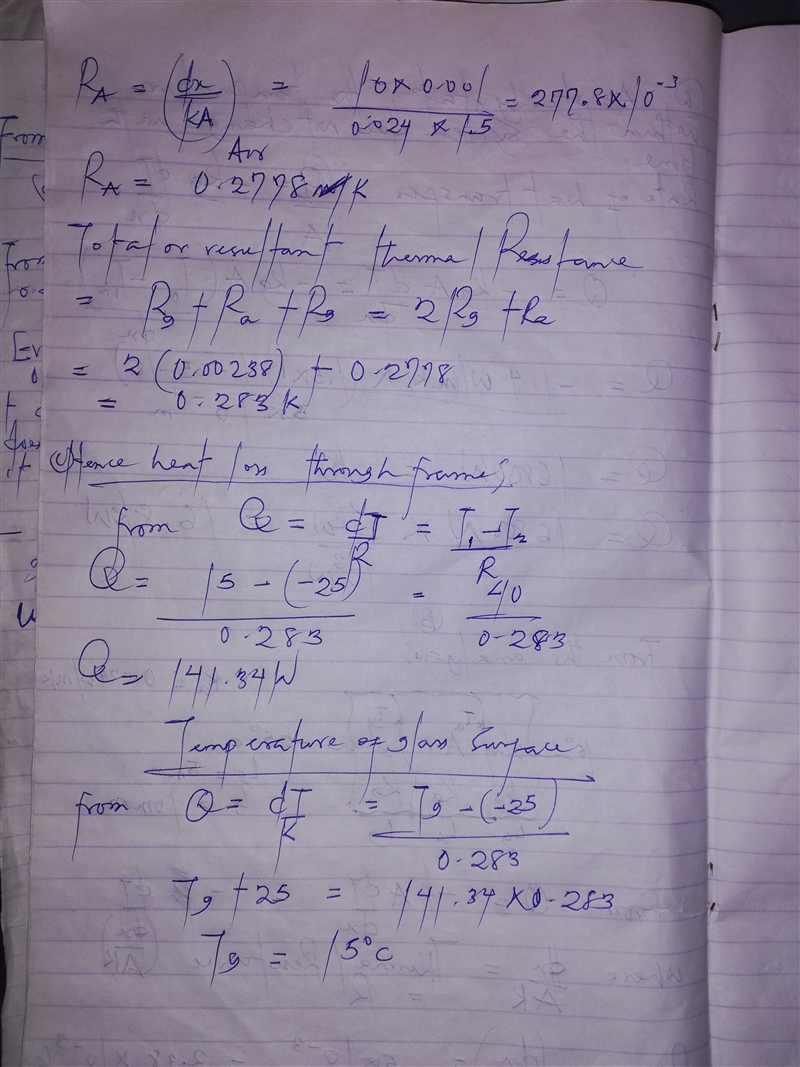 R_A = (dx/KA) = 10 × 0.001 / 0.024 × 1.5 = 277.8 × 10^-3
Air
R_A = 0.2778 /K
Total or resultant thermal Resistance
= Rg + Ra + Rg = 2Rg + Ra
= 2(0.00238) + 0.2778
= 0.283 K
Hence heat loss through frame;
from Q = dT/R = T₁ - T₂/R
Q = 15 - (-25)/0.283 = 40/0.283
Q = 141.34W
Temperature of glass Surface
from Q = dT/K = Tg - (-25)/0.283
Tg + 25 = 141.34 × 0.283
Tg = 15°C